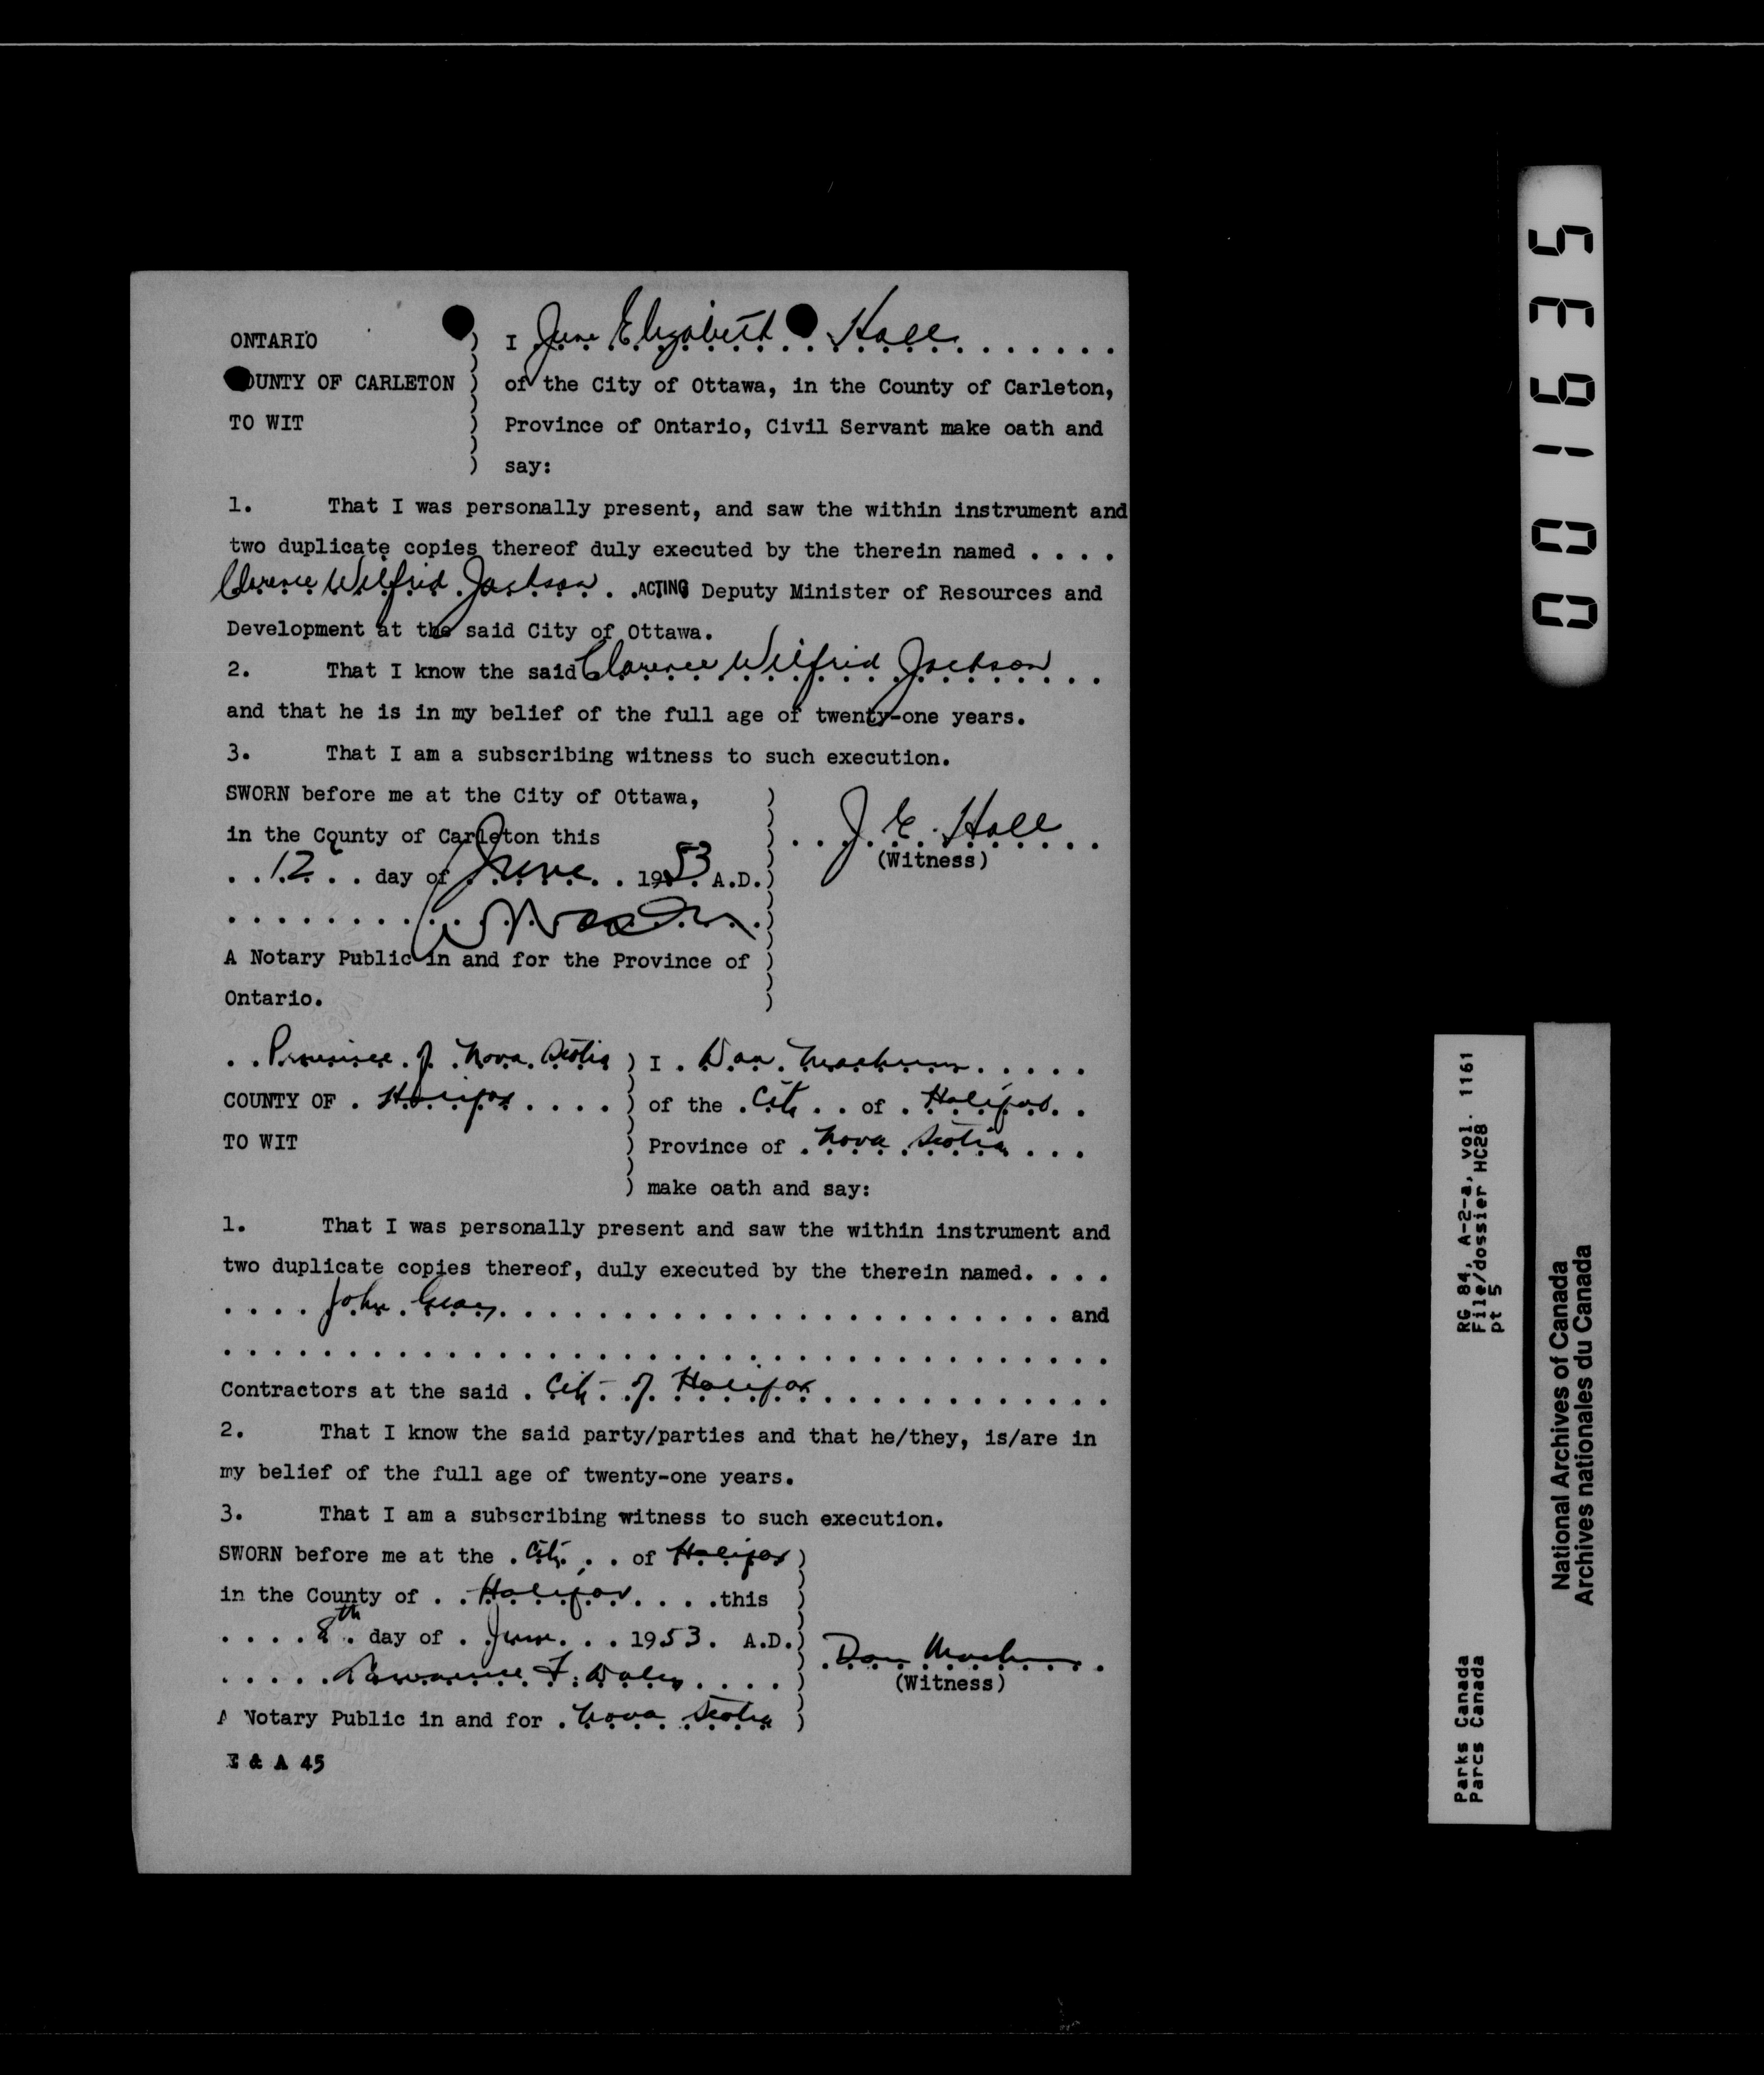 ONTARIO
COUNTY OF CARLETON
TO WIT
I June Elizabeth Hall
of the City of Ottawa, in the County of Carleton,
Province of Ontario, Civil Servant make oath and
say:
1. That I was personally present, and saw the within instrument and
two duplicate copies thereof duly executed by the therein named . . . .
Clarence Wilfrid Jackson. .ACTING Deputy Minister of Resources and
Development at the said City of Ottawa.
2. That I know the said Clarence Wilfrid Jackson
and that he is in my belief of the full age of twenty-one years.
3. That I am a subscribing witness to such execution.
SWORN before me at the City of Ottawa,
in the County of Carleton this
12 day of June 1953 A.D.
J. E. Hall
(Witness)
A Notary Public in and for the Province of
Ontario.
Province of Nova Scotia
COUNTY OF Halifax
TO WIT
I Don
of the City of Halifax
Province of Nova Scotia
make oath and say:
1. That I was personally present and saw the within instrument and
two duplicate copies thereof, duly executed by the therein named. . . .
John and
Contractors at the said City of Halifax
2. That I know the said party/parties and that he/they, is/are in
my belief of the full age of twenty-one years.
3. That I am a subscribing witness to such execution.
SWORN before me at the City of Halifax
in the County of Halifax this
8th day of June 1953. A.D.
Lawrence F. Daley
A Notary Public in and for Nova Scotia
Don
(Witness)
E & A 45
001635
RG 84, A-2-a, vol. 1161
File/dossier HC28
pt 5
Parks Canada
Parcs Canada
National Archives of Canada
Archives nationales du Canada